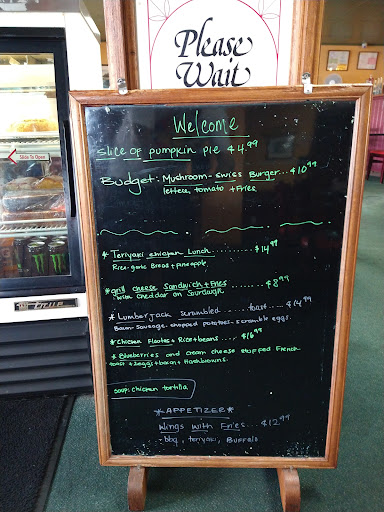 Please
Wait
Slide To Open
Welcome
slice of pumpkin pie $4.99
Budget: Mushroom-swiss Burger...$10.99
lettece, tomato +Fries
* Teriyaki chicken Lunch............$14.99
Rice-garlic Bread+pineapple.
*grill cheese Sandwich+Fries......$8.99
with cheddar on Sourdough
*Lumberjack scrambled.......toast....$14.99
Bacon-Sausage. chopped potatoes-scramble eggs.
*Chicken Flautas+Rice+beans.....$16.99
*Blueberries and cream cheese stopped French
toast+2eggs+bacon+Hashbrowns.
soup: chicken tortilla
*APPETIZER*
Wings with Fries...$12.99
-bbq, teriyaki, Buffalo
TRUE